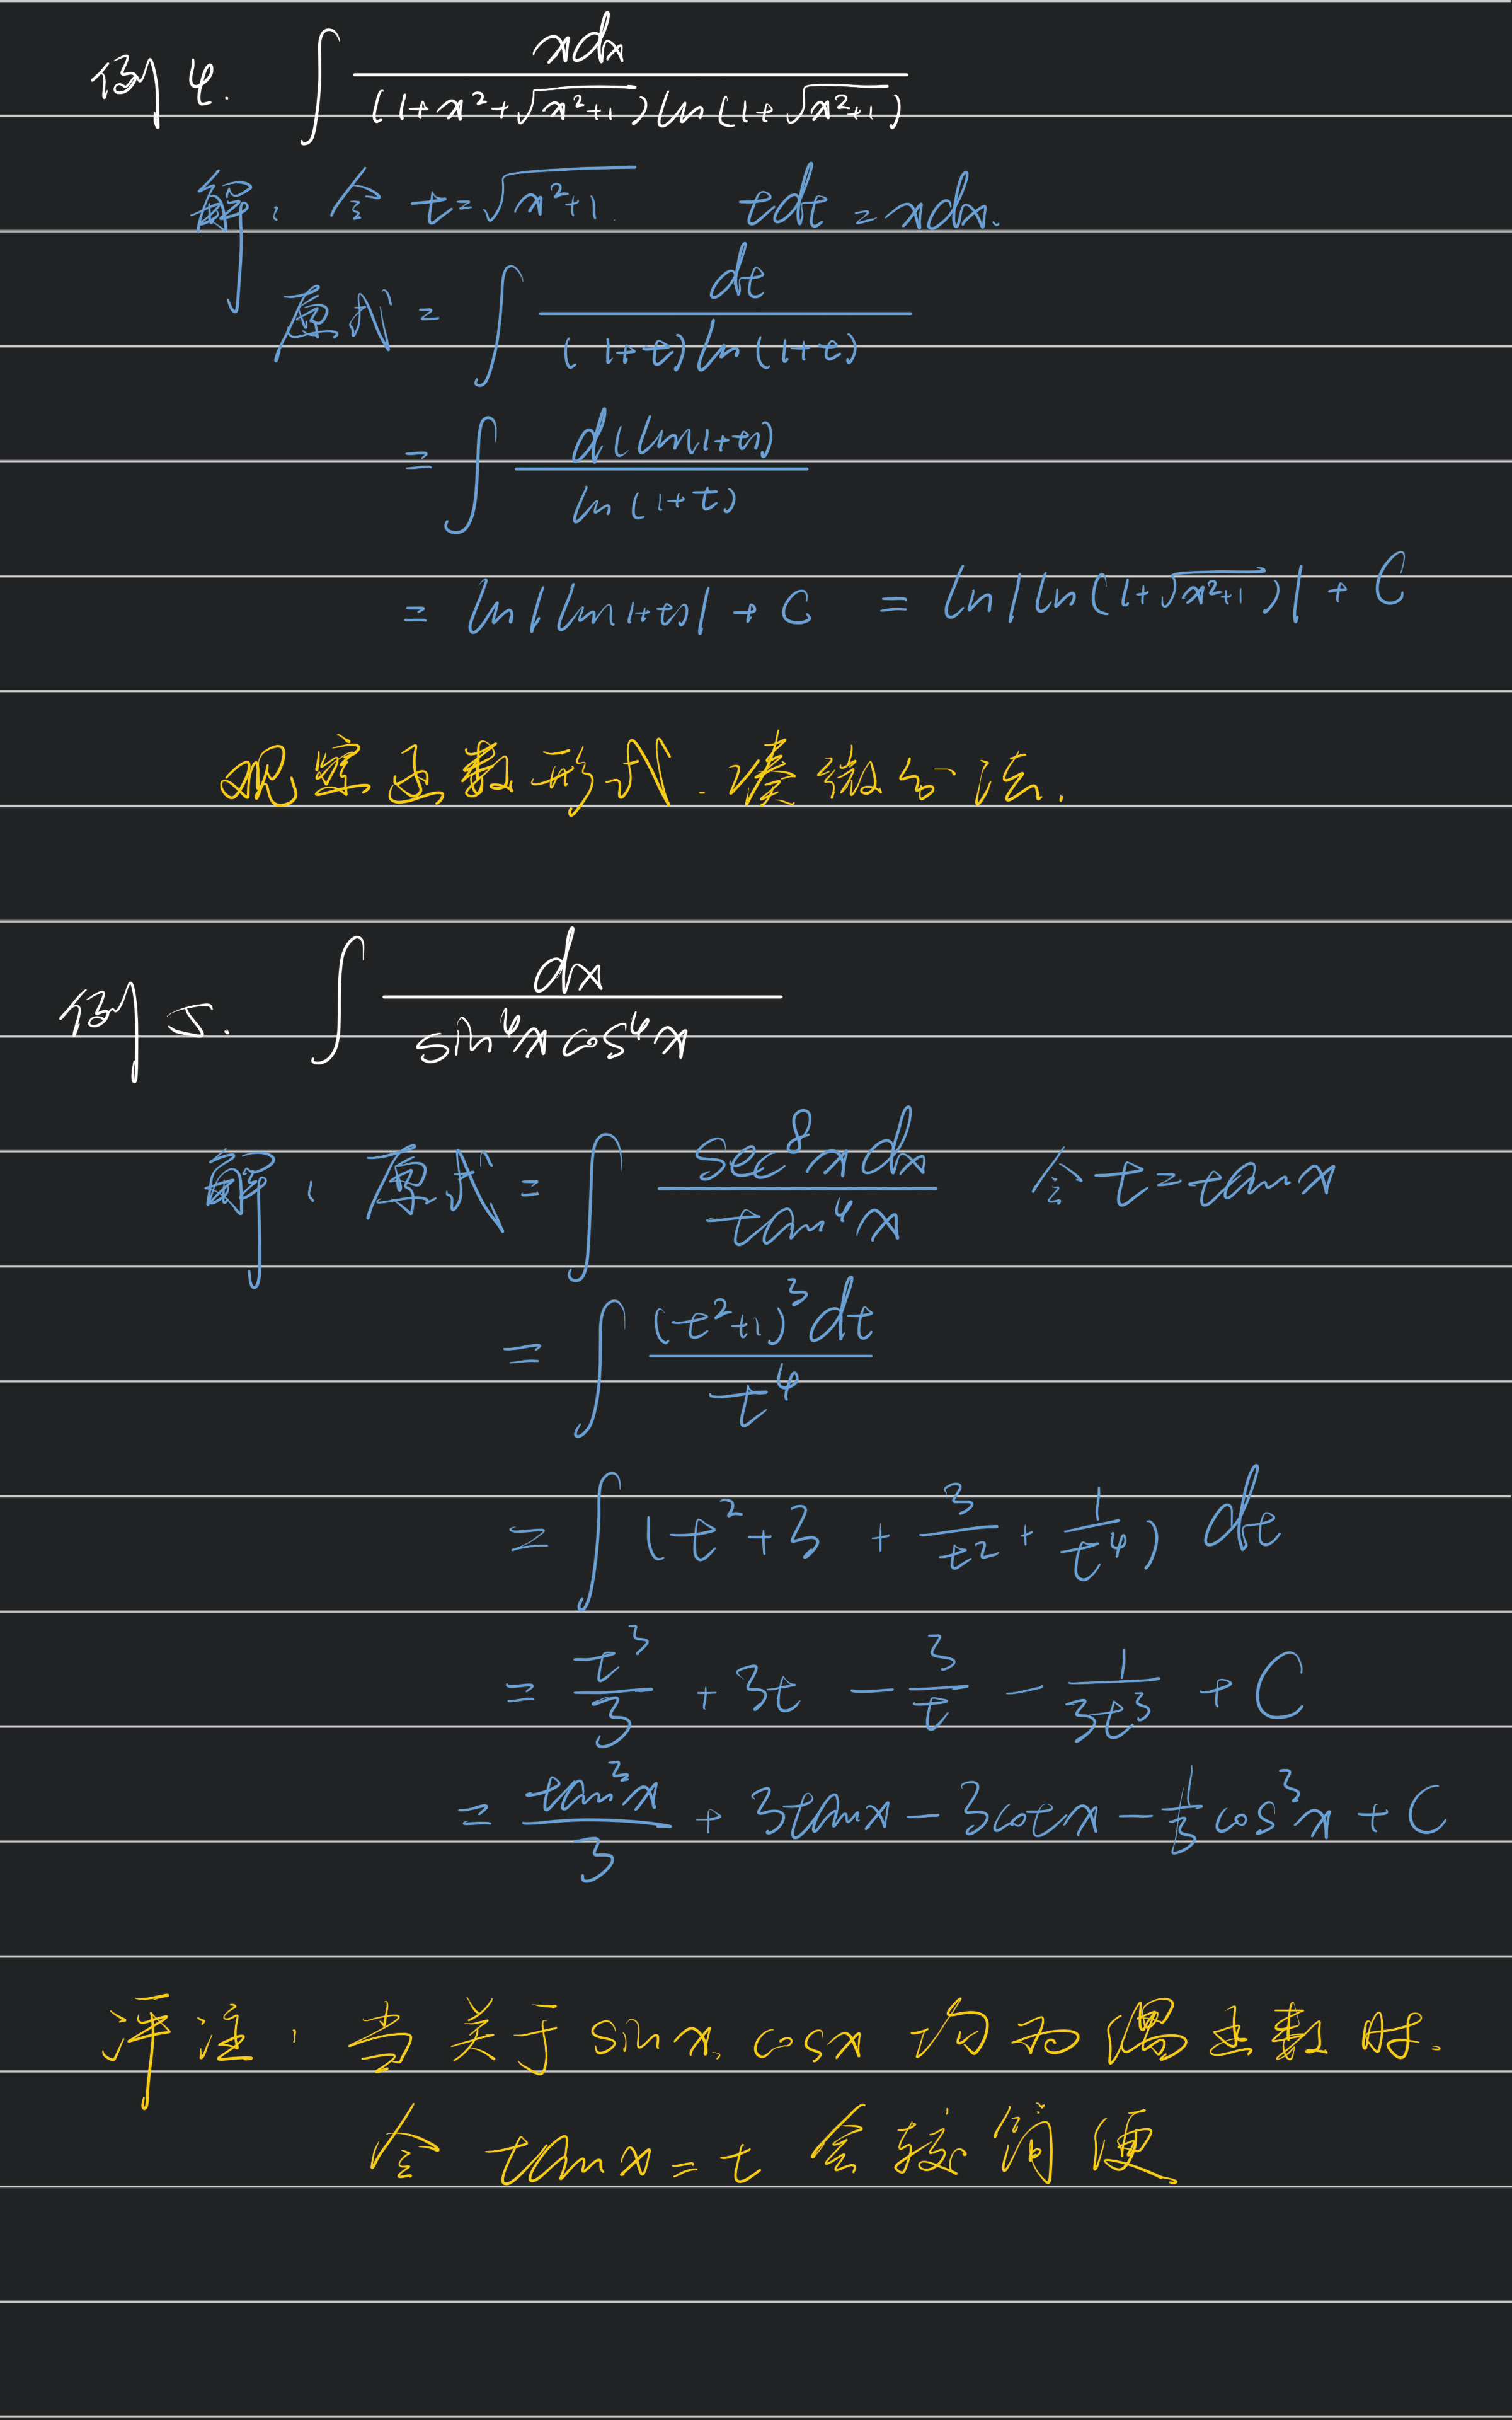 例4. ∫ xdx / ((1+x²+√(x²+1)) ln(1+√(x²+1)))
解: 令 t=√(x²+1). tdt=xdx.
原式 = ∫ dt / ((1+t) ln(1+t))
= ∫ d(ln(1+t)) / ln(1+t)
= ln|ln(1+t)| + C = ln|ln(1+√(x²+1))| + C
观察函数形式. 凑微分法.
例5. ∫ dx / (sin⁴x cos⁴x)
解: 原式 = ∫ sec⁸x dx / tan⁴x 令 t=tanx
= ∫ (t²+1)³dt / t⁴
= ∫ (t²+3 + 3/t² + 1/t⁴) dt
= t³/3 + 3t - 3/t - 1/(3t³) + C
= tan³x/3 + 3tanx - 3cotx - 1/3 cos³x + C
评注: 当关于sinx, cosx 均为偶函数时.
令 tanx=t 会较简便